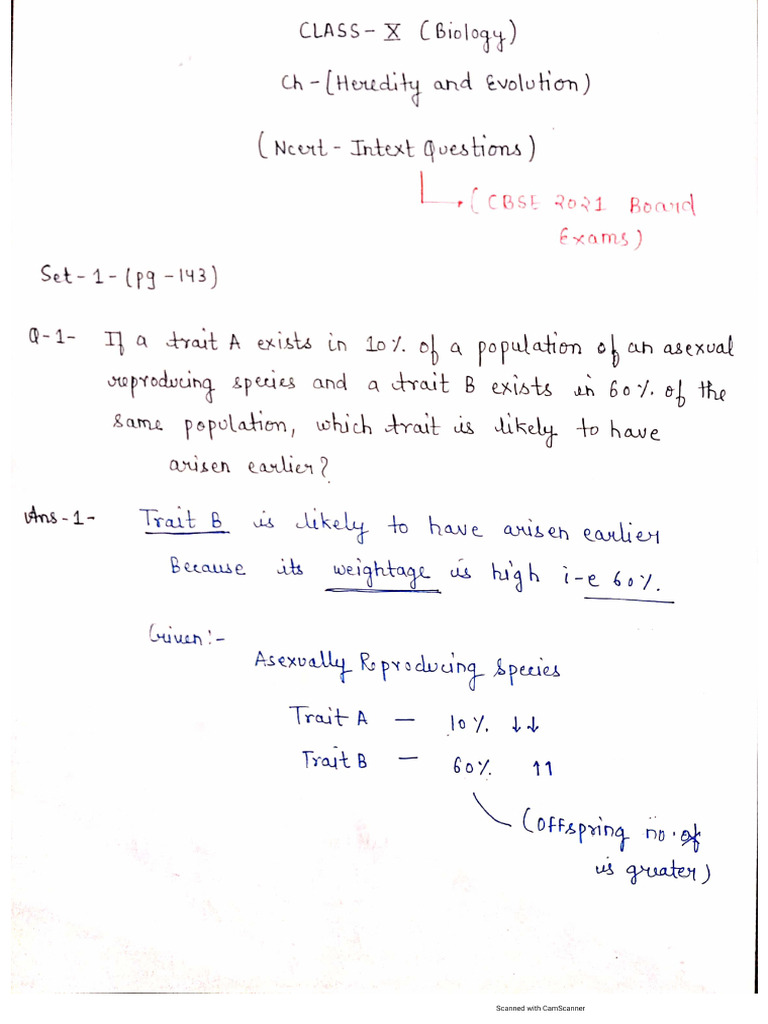 CLASS - X (Biology)
Ch - (Heredity and Evolution)
(Ncert - Intext Questions)
(CBSE 2021 Board
Exams)
Set - 1 - (pg - 143)
Q-1- If a trait A exists in 10% of a population of an asexual
reproducing species and a trait B exists in 60% of the
same population, which trait is likely to have
arisen earlier?
Ans-1- Trait B is likely to have arisen earlier
Because its weightage is high i-e 60%.
Given:-
Asexually Reproducing Species
Trait A — 10% ↓↓
Trait B — 60% ↑↑
(Offspring no. of
is greater)
Scanned with CamScanner